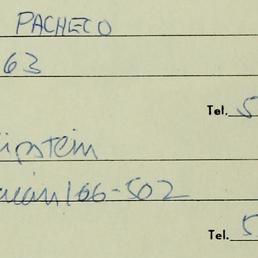 PACHECO
63
Tel. 5
ipstein
166-502
Tel. 5